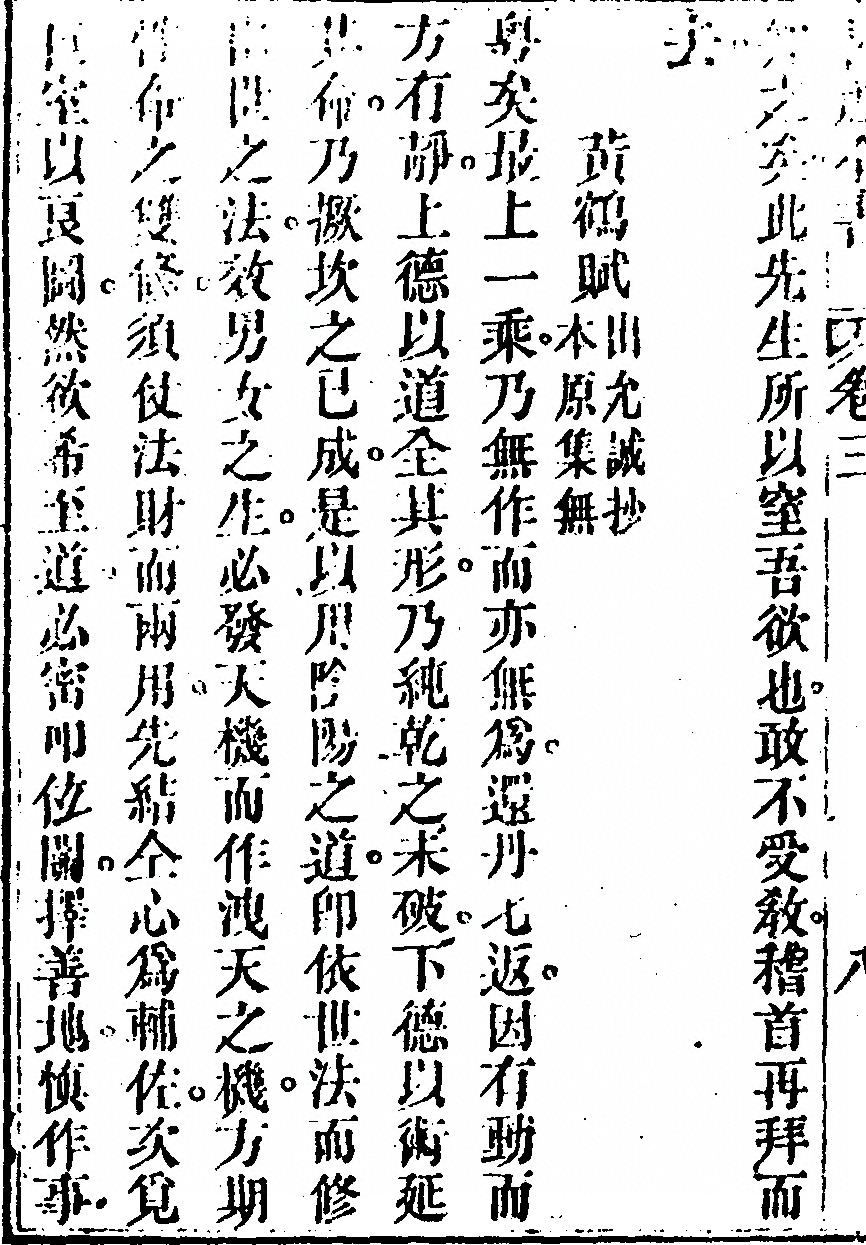 矣此先生所以窒吾欲也。敢不受教。稽首再拜而
去。
黃鶴賦
出允誠抄
本原集無
粵矣最上一乘。乃無作而亦無爲。還丹七返。因有動而
方有靜。上德以道全其形。乃純乾之未破。下德以術延
其命。乃撅坎之已成。是以用陰陽之道。卽依世法而修
出世之法。效男女之生。必發天機而作洩天之機。方期
性命之雙修。須仗法財而兩用。先結仝心爲輔佐。次覓
巨室以良圖。然欲希至道。必密叩位關。擇善地。愼作事
卷三
八